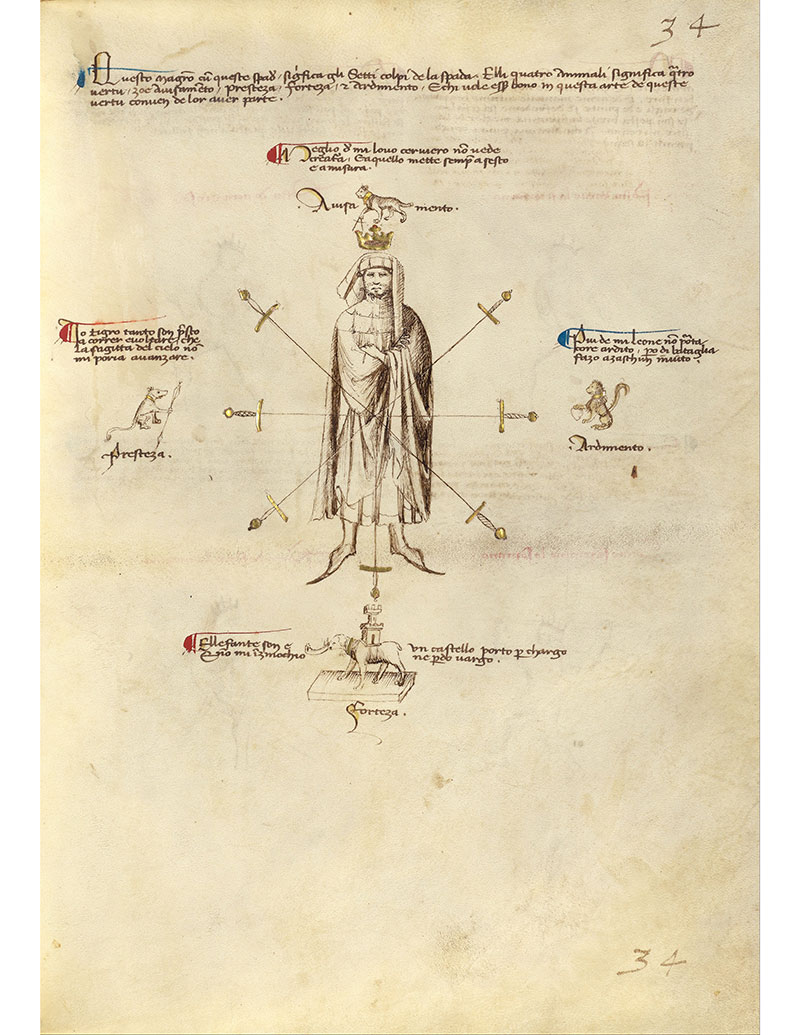 34
Questo magrō cū queste spad̄ significa gli Setti colpi de la spada. Elli quatro animali significa q̄tro
vertu, zoe avisamēto, Presteza, Forteza, et Ardimento, E chi vole ess̄ bono in questa arte de queste
vertu conven de lor aver parte.
Meglio d̄ mi lovo cerviero nō vede
creat̄a, E aquello mette semp̄ a sesto
e a misura.
Avisa mento.
Io tigro tanto son p̄sto
a correr e voltare, che
la sagitta del cielo nō
mi poria avanzare.
Presteza.
Piu de mi leone nō porta
core ardito, po di bataglia
fazo azaschun invito.
Ardimento.
Ellefante son e un castello porto p chargo
E nō mi īzinochio ne pdo vargo.
Forteza.
34